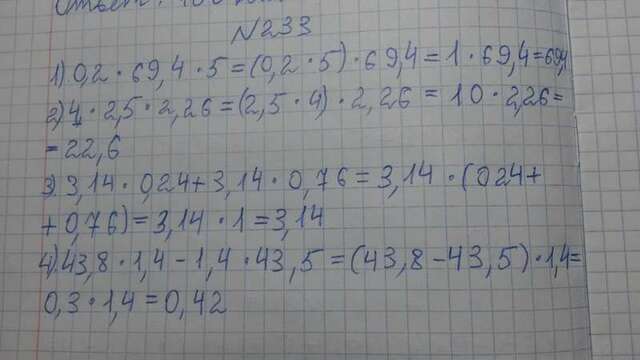 Ответ: 100
№233
1) 0,2 · 69,4 · 5 = (0,2 · 5) · 69,4 = 1 · 69,4 = 69,4
2) 4 · 2,5 · 2,26 = (2,5 · 4) · 2,26 = 10 · 2,26 =
= 22,6
3) 3,14 · 0,24 + 3,14 · 0,76 = 3,14 · (0,24 +
+ 0,76) = 3,14 · 1 = 3,14
4) 43,8 · 1,4 - 1,4 · 43,5 = (43,8 - 43,5) · 1,4 =
0,3 · 1,4 = 0,42